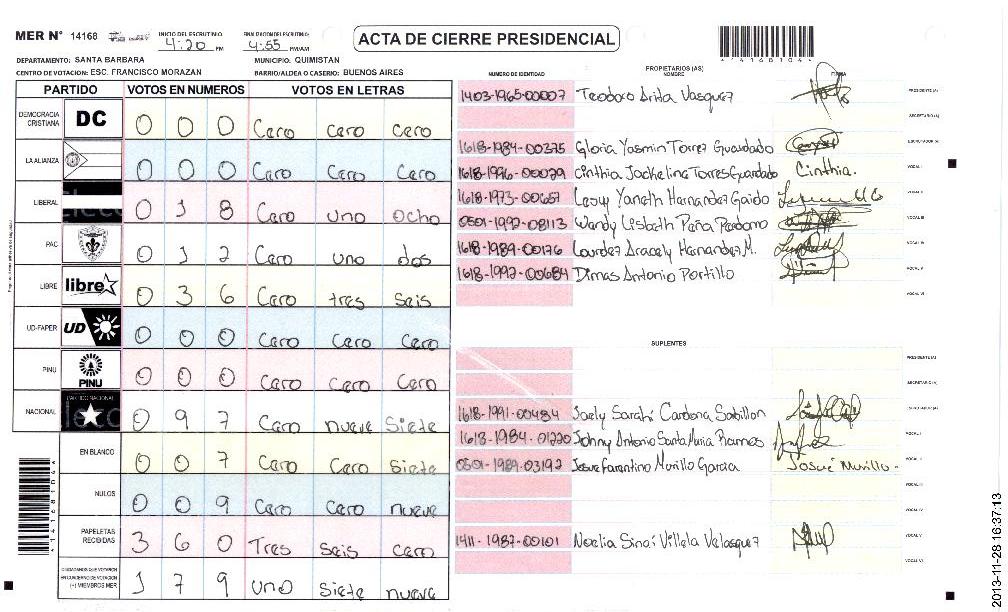 MER N° 14168 INICIO DEL ESCRUTINIO: 4:20 PM FINALIZACION DEL ESCRUTINIO: 4:55 PM/AM
ACTA DE CIERRE PRESIDENCIAL
DEPARTAMENTO: SANTA BARBARA MUNICIPIO: QUIMISTAN
CENTRO DE VOTACION: ESC. FRANCISCO MORAZAN BARRIO/ALDEA O CASERIO: BUENOS AIRES
PARTIDO VOTOS EN NUMEROS VOTOS EN LETRAS
DEMOCRACIA CRISTIANA DC 0 0 0 Cero cero cero
LA ALIANZA 0 0 0 Cero Cero Cero
LIBERAL 0 1 8 Cero uno ocho
PAC 0 1 2 Cero uno dos
LIBRE libre 0 3 6 Cero tres seis
UD-FAPER UD 0 0 0 Cero Cero Cero
PINU PINU 0 0 0 Cero Cero Cero
NACIONAL PARTIDO NACIONAL 0 9 7 Cero nueve Siete
EN BLANCO 0 0 7 Cero Cero Siete
NULOS 0 0 9 Cero Cero nueve
PAPELETAS RECIBIDAS 3 6 0 Tres seis cero
CIUDADANOS QUE VOTARON EN CUADERNO DE VOTACION (+) MIEMBROS MER 1 7 9 uno Siete nueve
PROPIETARIOS (AS)
NUMERO DE IDENTIDAD NOMBRE FIRMA
1403-1965-00007 Teodoro Arita Vasquez PRESIDENTE (A)
SECRETARIO (A)
1618-1984-00375 Gloria Yasmin Torrez Guardado ESCRUTADOR (A)
1618-1996-00079 Cinthia Jackelina Torres Guardado Cinthia. VOCAL I
1618-1973-00657 Yaneth Hernandez VOCAL II
0501-1992-08113 Wendy Lisbeth Peña Perdomo VOCAL III
1618-1989-00176 Lourdez Aracely Hernandez M. VOCAL IV
1618-1992-00684 Dimas Antonio Portillo VOCAL V
VOCAL VI
SUPLENTES
PRESIDENTE (A)
SECRETARIO (A)
1618-1991-00484 Sarahi Cardona Sabillon ESCRUTADOR (A)
1613-1984-01220 Johnny Antonio Santa Maria Ramos VOCAL I
0501-1989-03192 Josue Farantino Murillo Garcia Josué Murillo VOCAL II
VOCAL III
VOCAL IV
1411-1987-00101 Noelia Sinai Villela Velasquez VOCAL V
VOCAL VI
2013-11-28 16:37:13